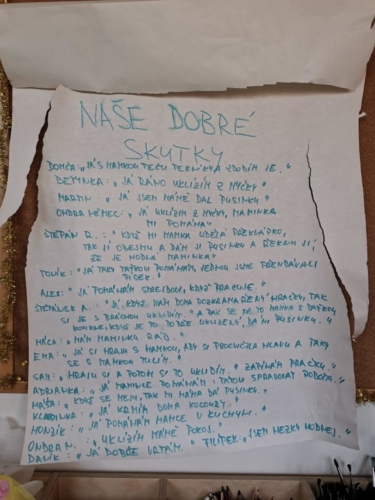 NAŠE DOBRÉ
SKUTKY
DOMČA: „JÁ S MAMKOU PEČU PERNÍK A ZDOBÍM JE."
BETYNKA: „JÁ RÁNO UKLÍZÍM Z MYČKY"
MARTIN: „JÁ JSEM MÁMĚ DAL PUSINKU."
ONDRA NĚMEC: „JÁ UKLÍZÍM Z MYČKY, MAMINKA
MI POMÁHÁ"
ŠTĚPÁN R.: „KDYŽ MI MAMKA UDĚLÁ PŘEKVÁPKO,
TAK JI OBEJMU A DÁM JÍ PUSINKU A ŘEKNU JÍ,
ŽE JE HODNÁ MAMINKA"
TONÍK: „JÁ TAKY TAŤKOU POMÁHÁM, JEDNOU JSME PŘENDAVALI
PÍSEK."
ALEX: „JÁ POMÁHÁM STREJDOVI, KDYŽ PRACUJE."
ŠTĚPÁNEK A.: „JÁ, KDYŽ MÁM DOMA ROZHÁZENÝ HRAČKY, TAK
SI JE S BRÁCHOU UKLIDÍM. A PAK SE NA TO MAMKA S TAŤKOU
KOUKNE, KDYŽ JE TO DOBŘE UKLIZENÝ, DAJÍ PUSINKY."
MÁCA: „MÁM MAMINKU RÁD.
EMA: „JÁ SI HRAJU S MAMKOU, ABY SI PROCVIČILA HLAVU A TAKY
SE S MAMKOU TULÍM."
SAM: „HRAJU SI A POTOM SI TO UKLIDÍM." ZAPÍNÁM PRAČKU."
ADRIANKA: „JÁ MAMINCE POMÁHÁM I TÁTOU SPRAVOVAT ROBOTA."
MÁJA: „KDYŽ SE MEJM, TAK MI MÁMA DÁ PUSINKU."
KLAUDINKA: „JÁ KRMÍM DOMA KOCOURY."
HONZÍK: „JÁ POMÁHÁM MAMCE V KUCHYNI."
ONDRA M.: „UKLÍZÍM MÁMĚ POKOJ."
DAVÍK: „JÁ DOBŘE VRTÁM." FILÍPEK: „JSEM HEZKY HODNEJ."